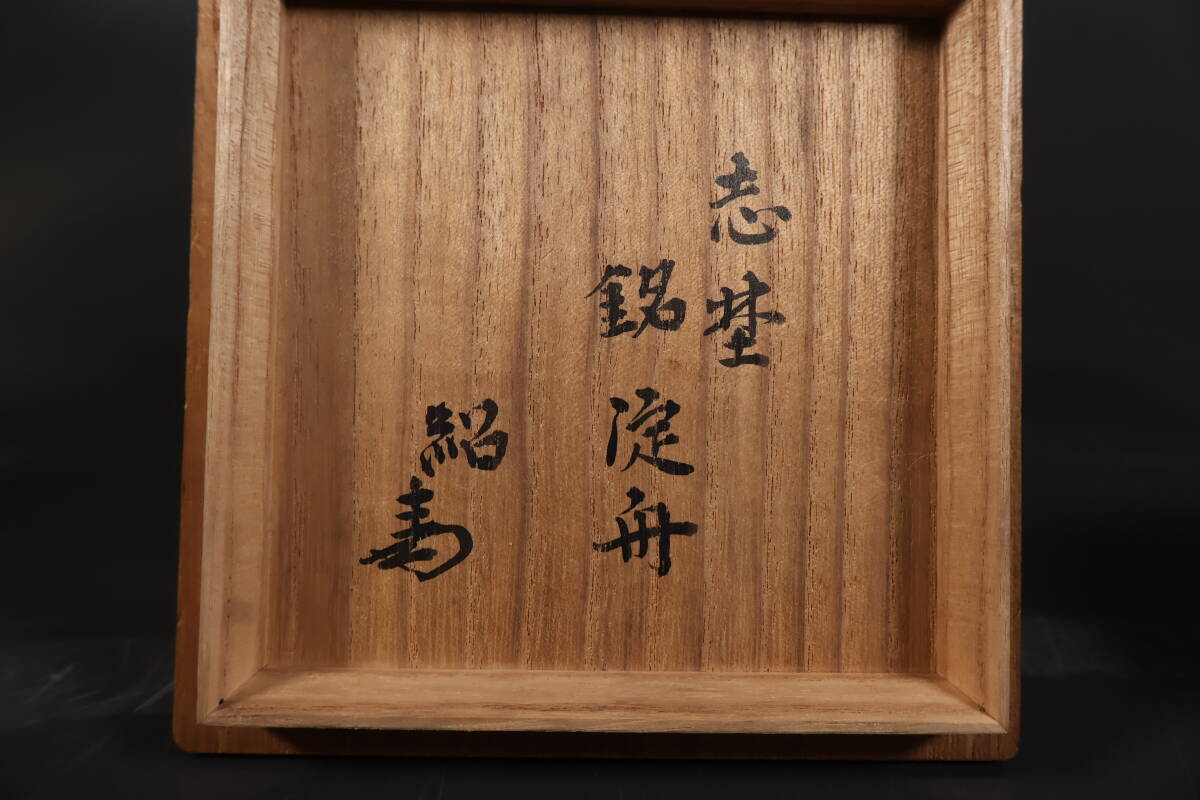 志埜
銘 淀舟
紹寿